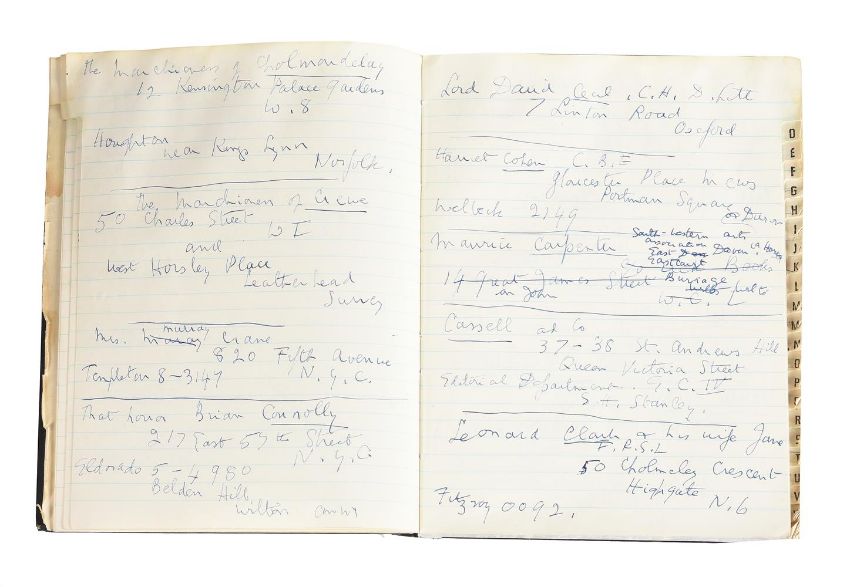 the Marchioness of Cholmondeley
12 Kensington Palace Gardens
W. 8
Houghton
near Kings Lynn
Norfolk.
the Marchioness of Crewe
50 Charles Street
W I
and
West Horsley Place
Leatherhead
Surrey
murray
Mrs. Crane
820 Fifth Avenue
Templeton 8-3147 N.Y.C.
That horror Brian Connolly
217 East 57th Street
N.Y.C.
Eldorado 5-4980
Belden Hill
Wilton conn
Lord David Cecil, C.H. D. Litt
7 Linton Road
Oxford
Harriet Cohen C.B.E
Gloucester Place Mews
Portman Square
Welbeck 2149
or Devon
South-Western arts
association Devon.
Maurice Carpenter East
Eastcourt
Books
14 Great James Street Burbage
Wilts
on John W.C.1
Cassell and Co
37-38 St. Andrews Hill
Queen Victoria Street
Editorial Department. E.C. IV
S.H. Stanley.
Leonard Clark & his wife Jane
F.R.S.L
50 Cholmeley Crescent
Highgate N.6
Fitzroy 0092.
D
E
F
G
H
I
J
K
L
M
N
O
P
Q
R
S
T
U
V